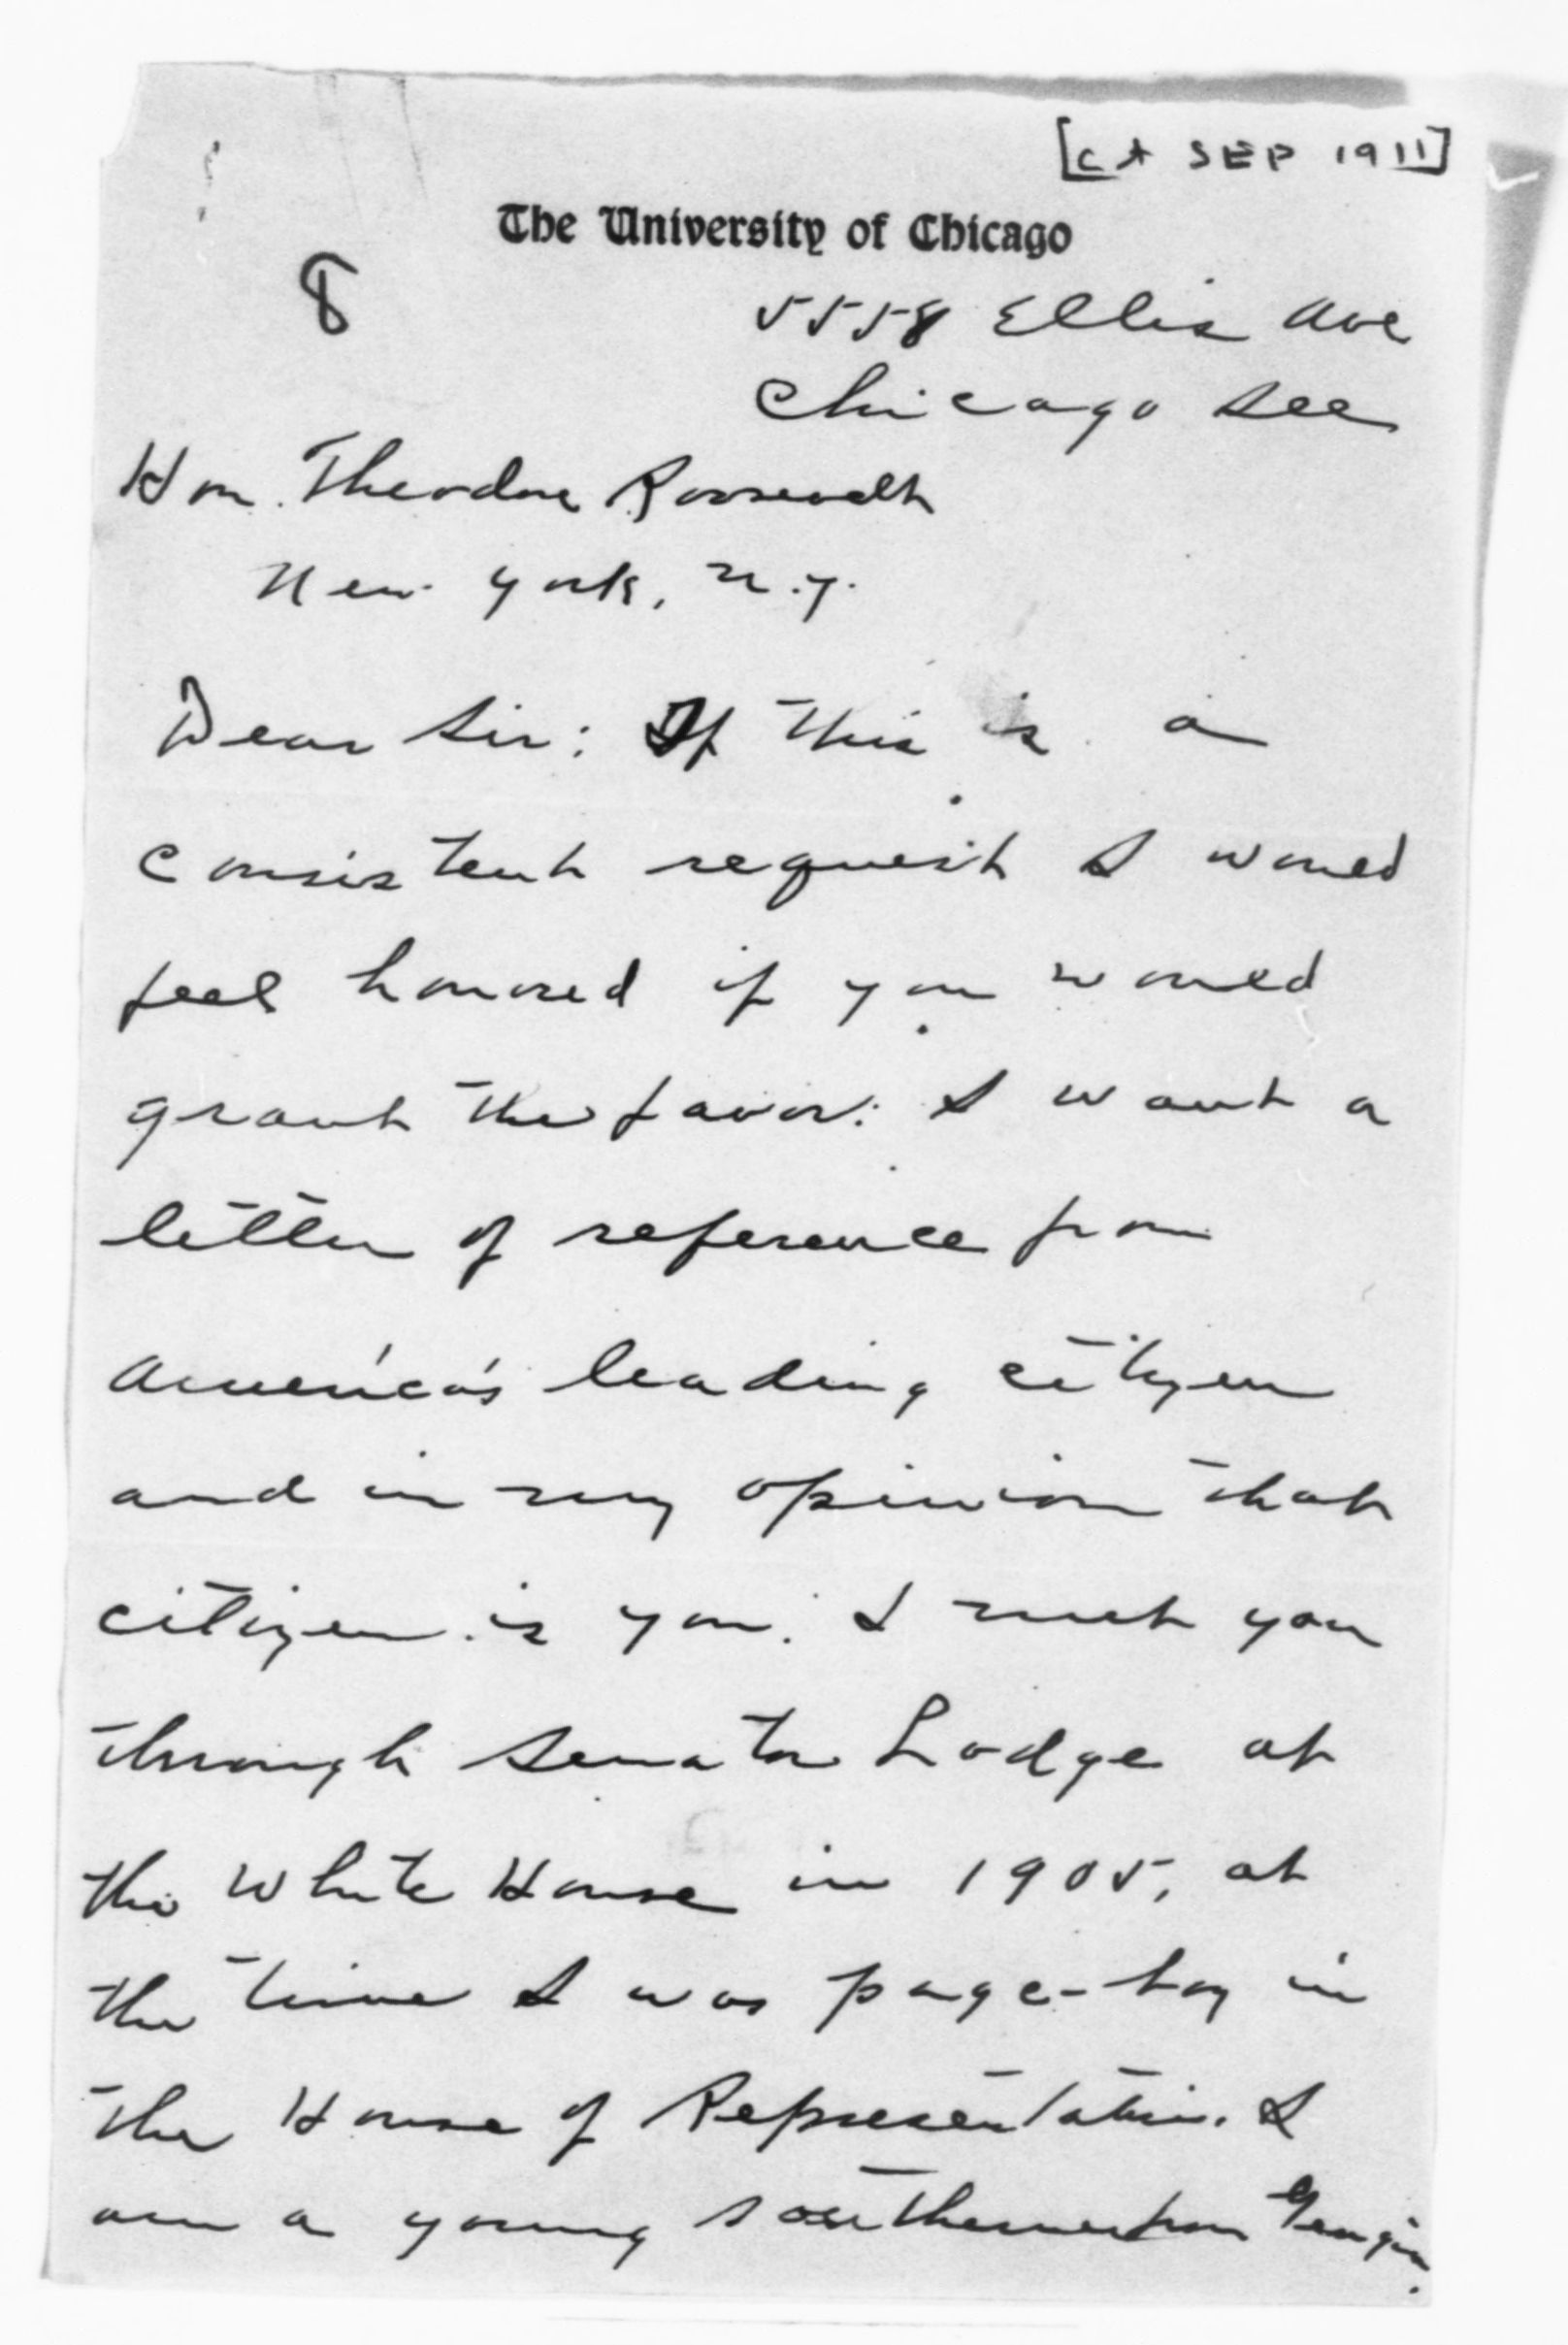 [CA SEP 1911]
The University of Chicago
8
5558 Ellis Ave
Chicago Ill
Hon. Theodore Roosevelt
New York, N.Y.
Dear Sir: If this is a
consistent request I would
feel honored if you would
grant the favor: I want a
letter of reference from
America's leading citizen
and in my opinion that
citizen is you. I met you
through Senator Lodge at
the White House in 1905, at
the time I was page-boy in
the House of Representative. I
am a young southerner from Georgia.